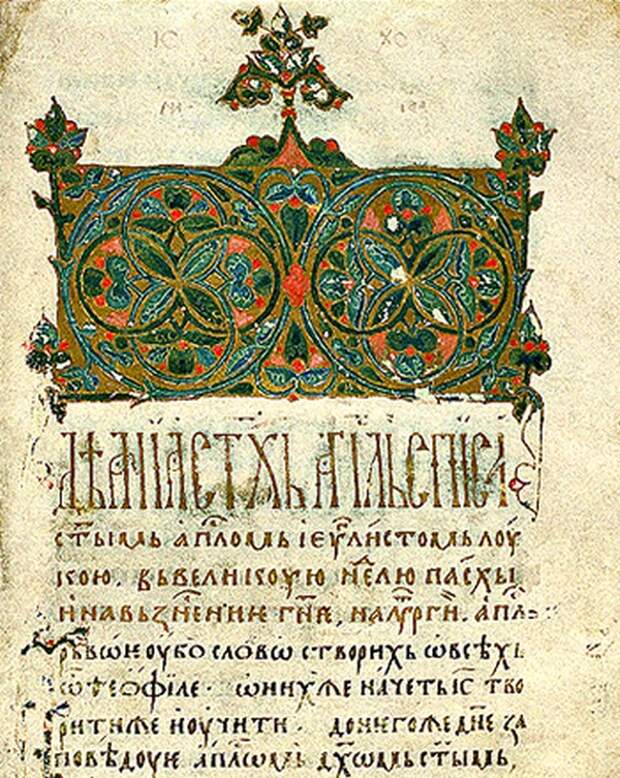 ДѢꙖНІꙖ СТ҃ХЬ АП҃ЛЬ СПІСА
ст҃ымь ап҃ломь і еѵ҃листомь лоу
кою. вь великоую н҃елю пасхы
и на вьзн҃ениѥ г҃нѥ, на лѵ҃рги. ап҃л
рьвоѥ оубо словѡ створихь ѡ всѣхь
ѡ ѳеѡфіле · ѡ нихже начеть іс҃ тво
рити же и оучити · до нѥгоже дн҃е за
повѣдоуѥ ап҃лѡмь дх҃ѡмь ст҃ымь,